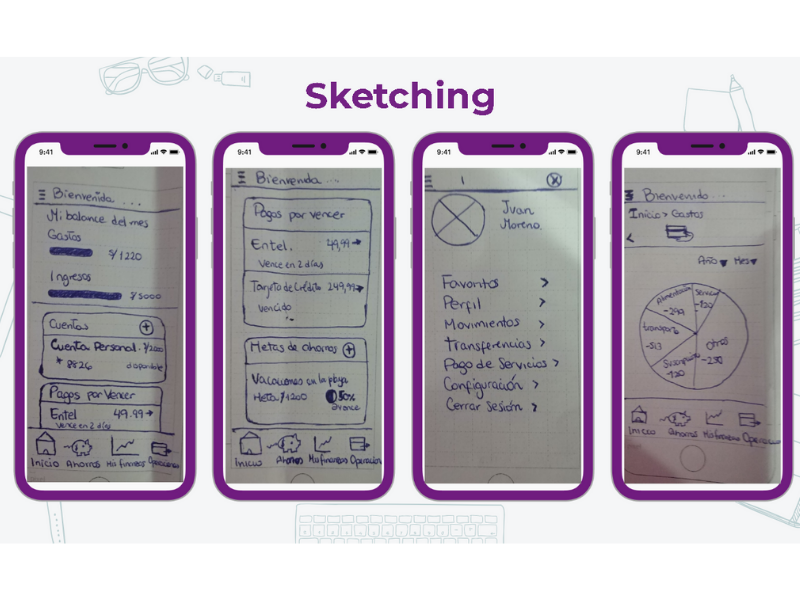 Sketching
9:41
Bienvenida ...
Mi balance del mes
Gastos
S/1220
Ingresos
S/5000
Cuentas
Cuenta Personal
* 8826 disponible
Pagos por Vencer
Entel 49.99
Vence en 2 días
Inicio Ahorros Mis finanzas Operaciones
9:41
Bienvenida ...
Pagos por vencer
Entel. 49,99
Vence en 2 días
Tarjeta de Crédito 249,99
Vencido
Metas de ahorros
Vacaciones en la playa
Meta S/1200 50%
avance
Inicio Ahorros Mis finanzas Operacion
9:41
X
Juan
Moreno.
Favoritos >
Perfil >
Movimientos >
Transferencias >
Pago de Servicios >
Configuración >
Cerrar Sesión >
9:41
Bienvenido ...
Inicio > Gastos
<
Año Mes
Alimentación
-290
Servicios
-120
transporte
-513
Otros
-250
Suscripción
-120
Inicio Ahorros Mis finanzas Operaciones